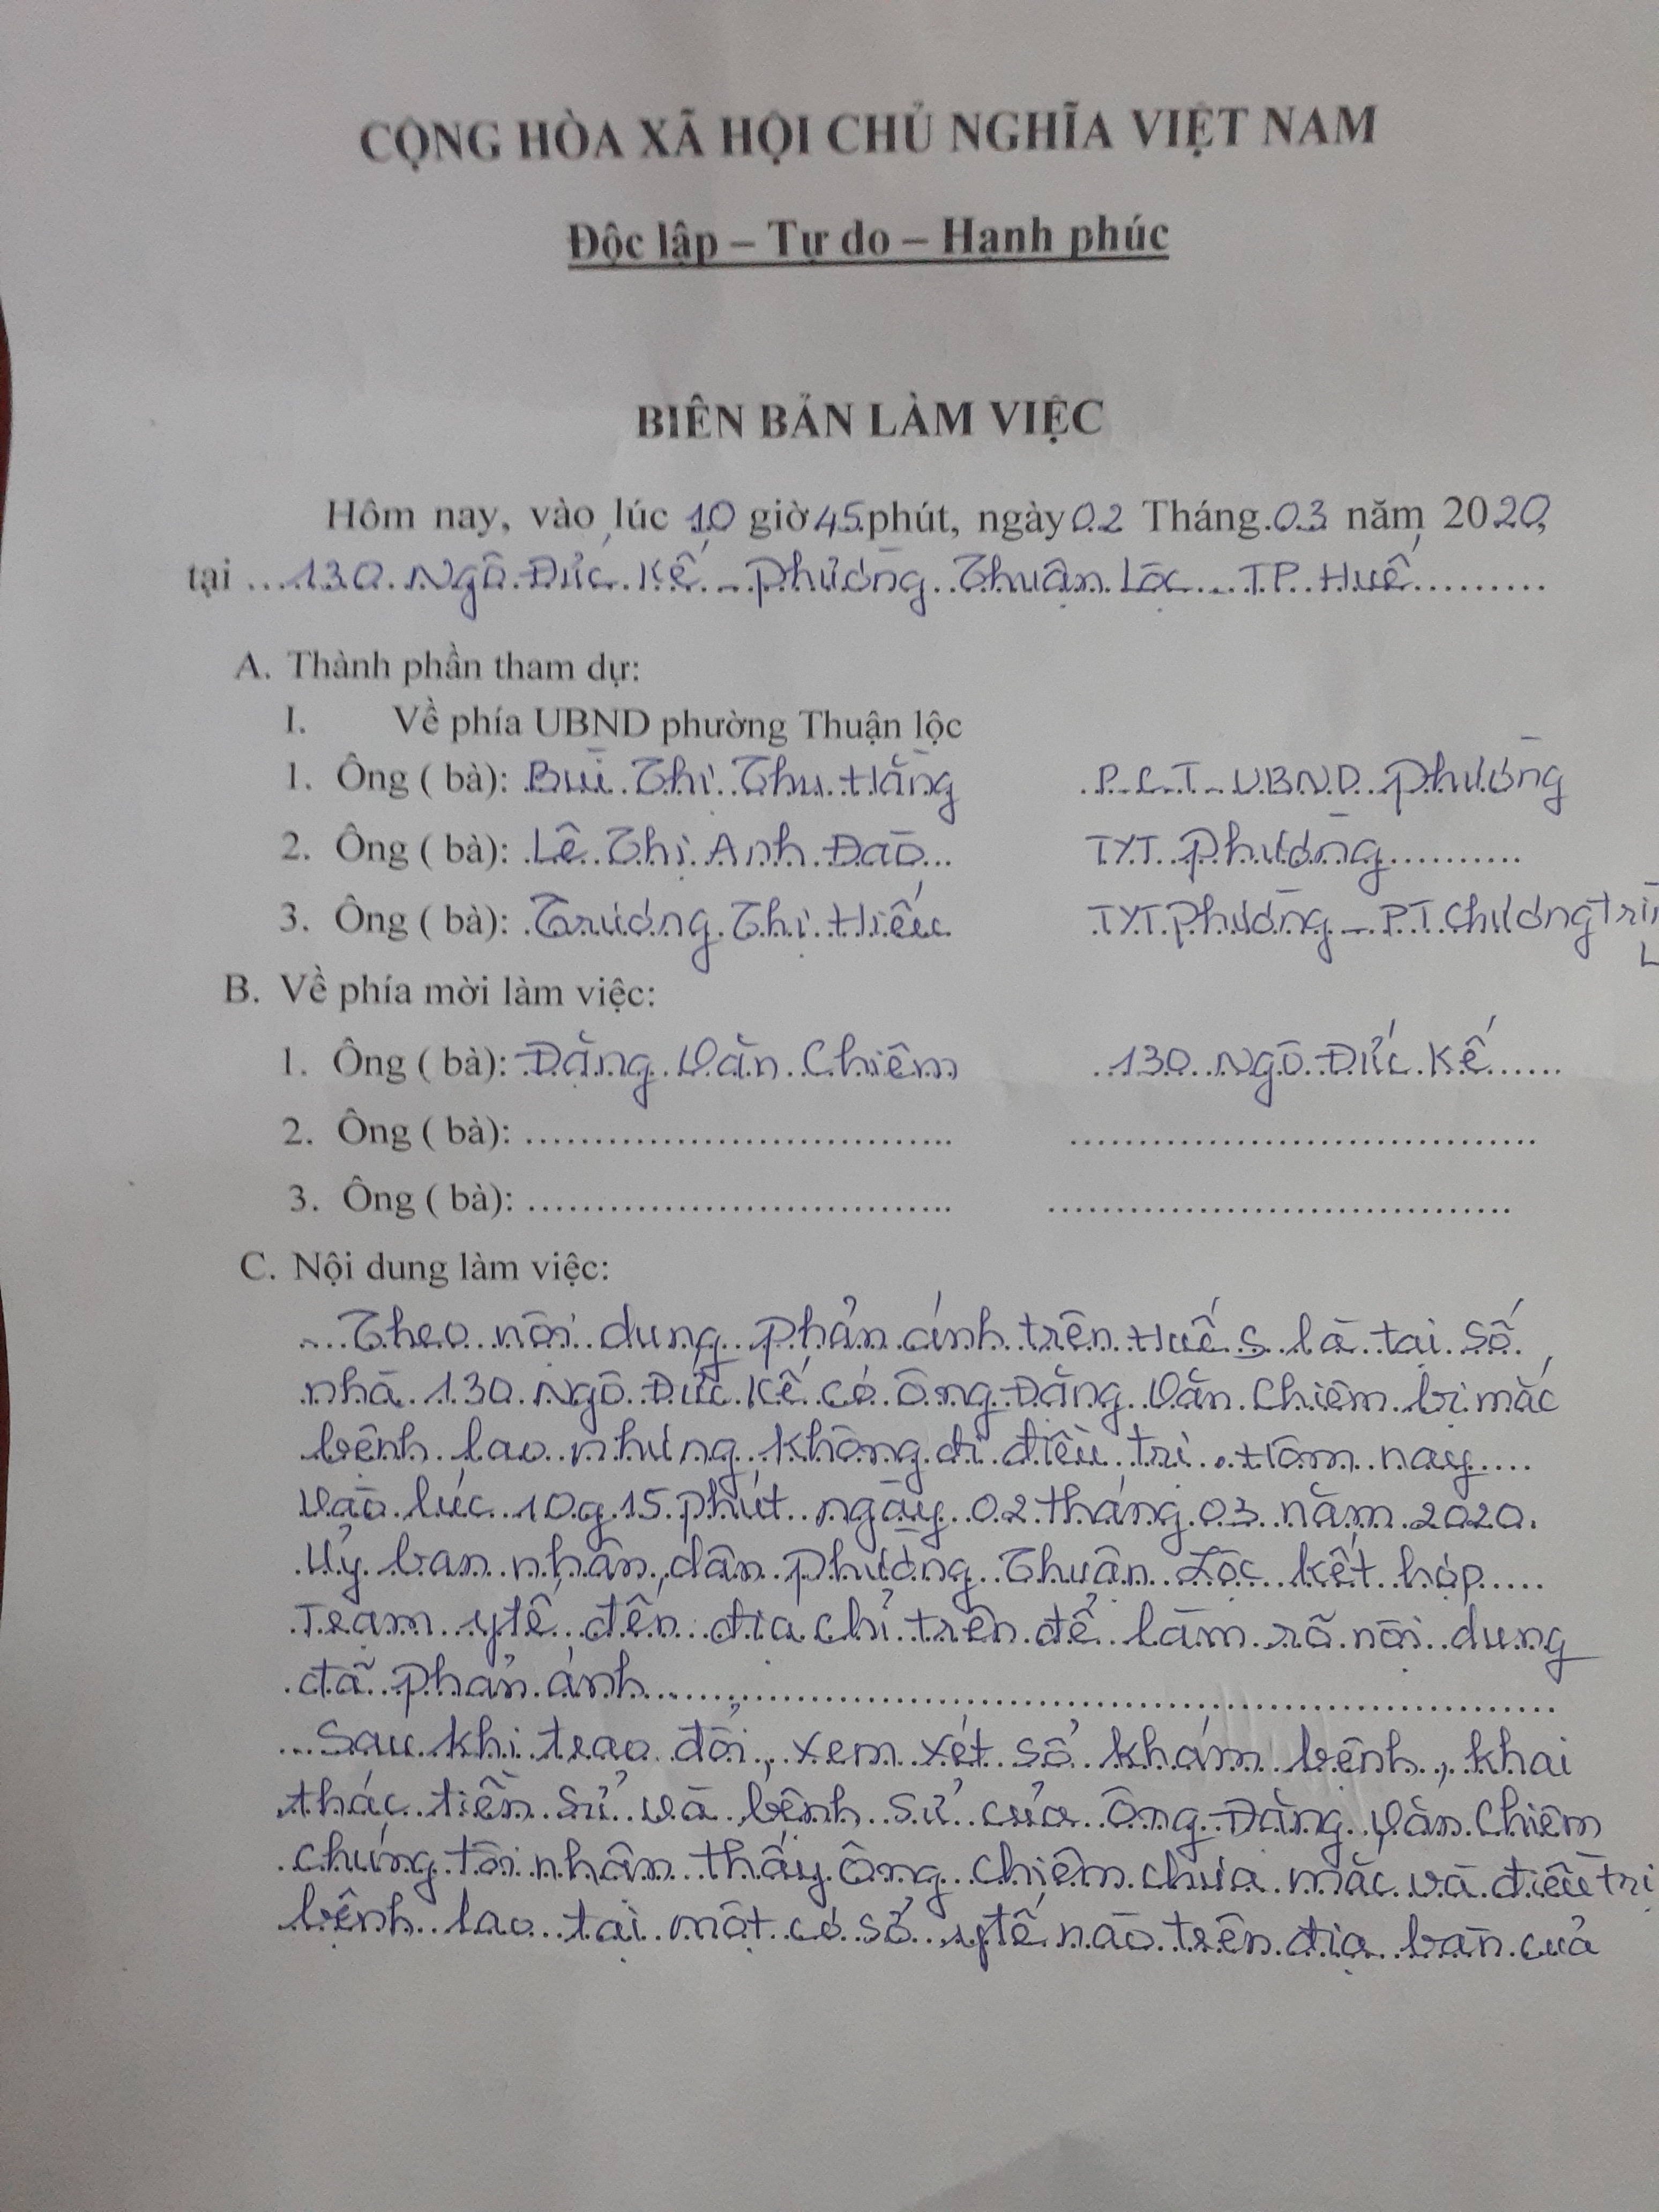 CỘNG HÒA XÃ HỘI CHỦ NGHĨA VIỆT NAM
Độc lập – Tự do – Hạnh phúc
BIÊN BẢN LÀM VIỆC
Hôm nay, vào lúc 10 giờ 45 phút, ngày 02 Tháng 03 năm 2020,
tại ...130 Ngô Đức Kế - Phường Thuận Lộc - TP Huế.........
A. Thành phần tham dự:
I. Về phía UBND phường Thuận lộc
1. Ông ( bà): Bùi Thị Thu Hằng P.C.T - UBND Phường
2. Ông ( bà): Lê Thị Anh Đào... TYT Phường..........
3. Ông ( bà): Trương Thị Hiếu TYT Phường - P.T Chương
B. Về phía mời làm việc:
1. Ông ( bà): Đặng Văn Chiêm 130 Ngô Đức Kế......
2. Ông ( bà): ................................ ..................................
3. Ông ( bà): ................................ ..................................
C. Nội dung làm việc:
...Theo nội dung phản ánh trên Huế S là tại số
nhà 130 Ngô Đức Kế có ông Đặng Văn Chiêm bị mắc
bệnh lao nhưng không đi điều trị. Hôm nay....
vào lúc 10g 15 phút ngày 02 tháng 03 năm 2020.
Uỷ ban nhân dân phường Thuận Lộc kết hợp.....
Trạm y tế đến địa chỉ trên để làm rõ nội dung
đã phản ánh..................................................
...Sau khi trao đổi, xem xét sổ khám bệnh, khai
thác tiền sử và bệnh sử của ông Đặng Văn Chiêm
chúng tôi nhận thấy ông Chiêm chưa mắc và điều trị
bệnh lao tại một cơ sở y tế nào trên địa bàn của